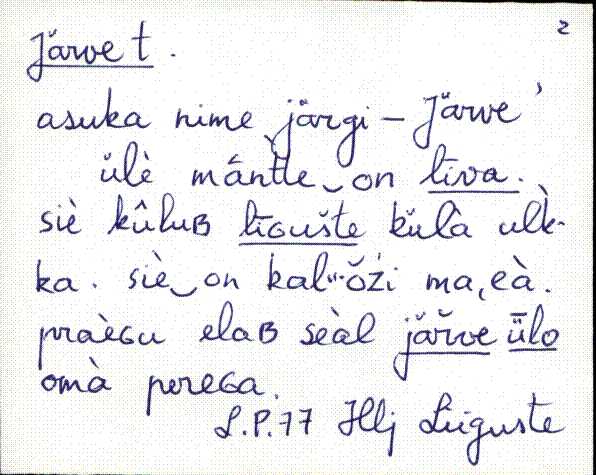 2
Järve t.
asuka nime järgi – Järve'
ülè mântle‿on līva.
siè kûluʙ līɢušte kŭlà ulk-
ka. siè‿on kal···ŏźi ma,eà.
praèɢu elaʙ seàl jä̆r̆ve ǖlo
omà pereɢa.
L.P.77 Hlj Liiguste